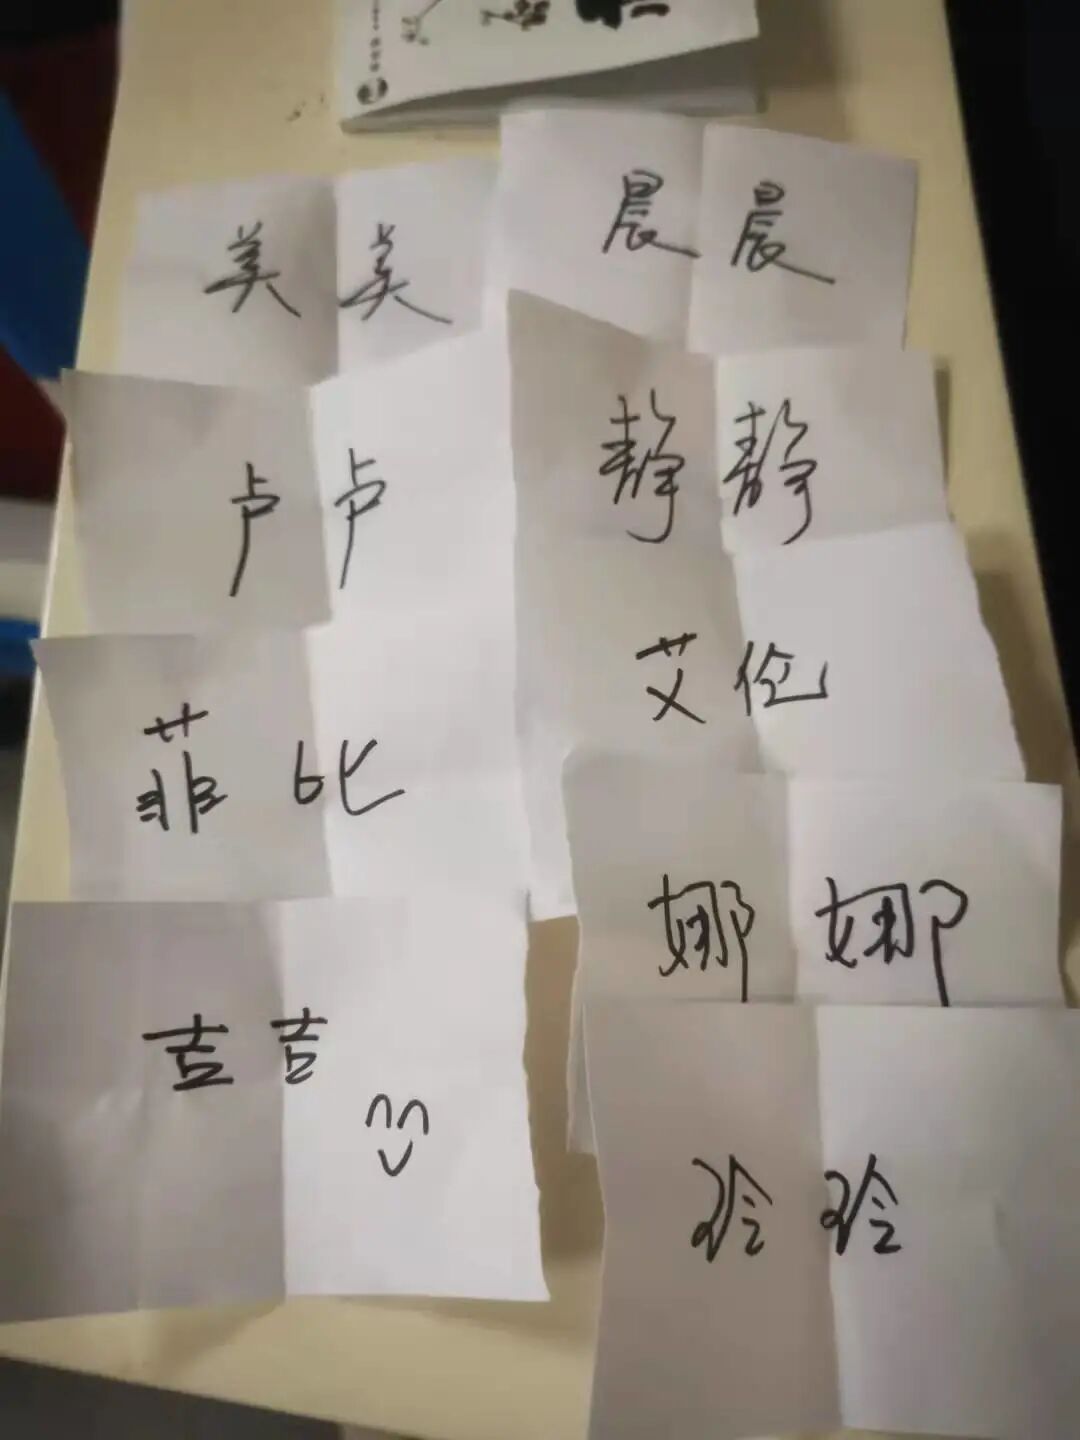 美美
晨晨
卢卢
静静
菲比
艾伦
吉吉
娜娜
玲玲